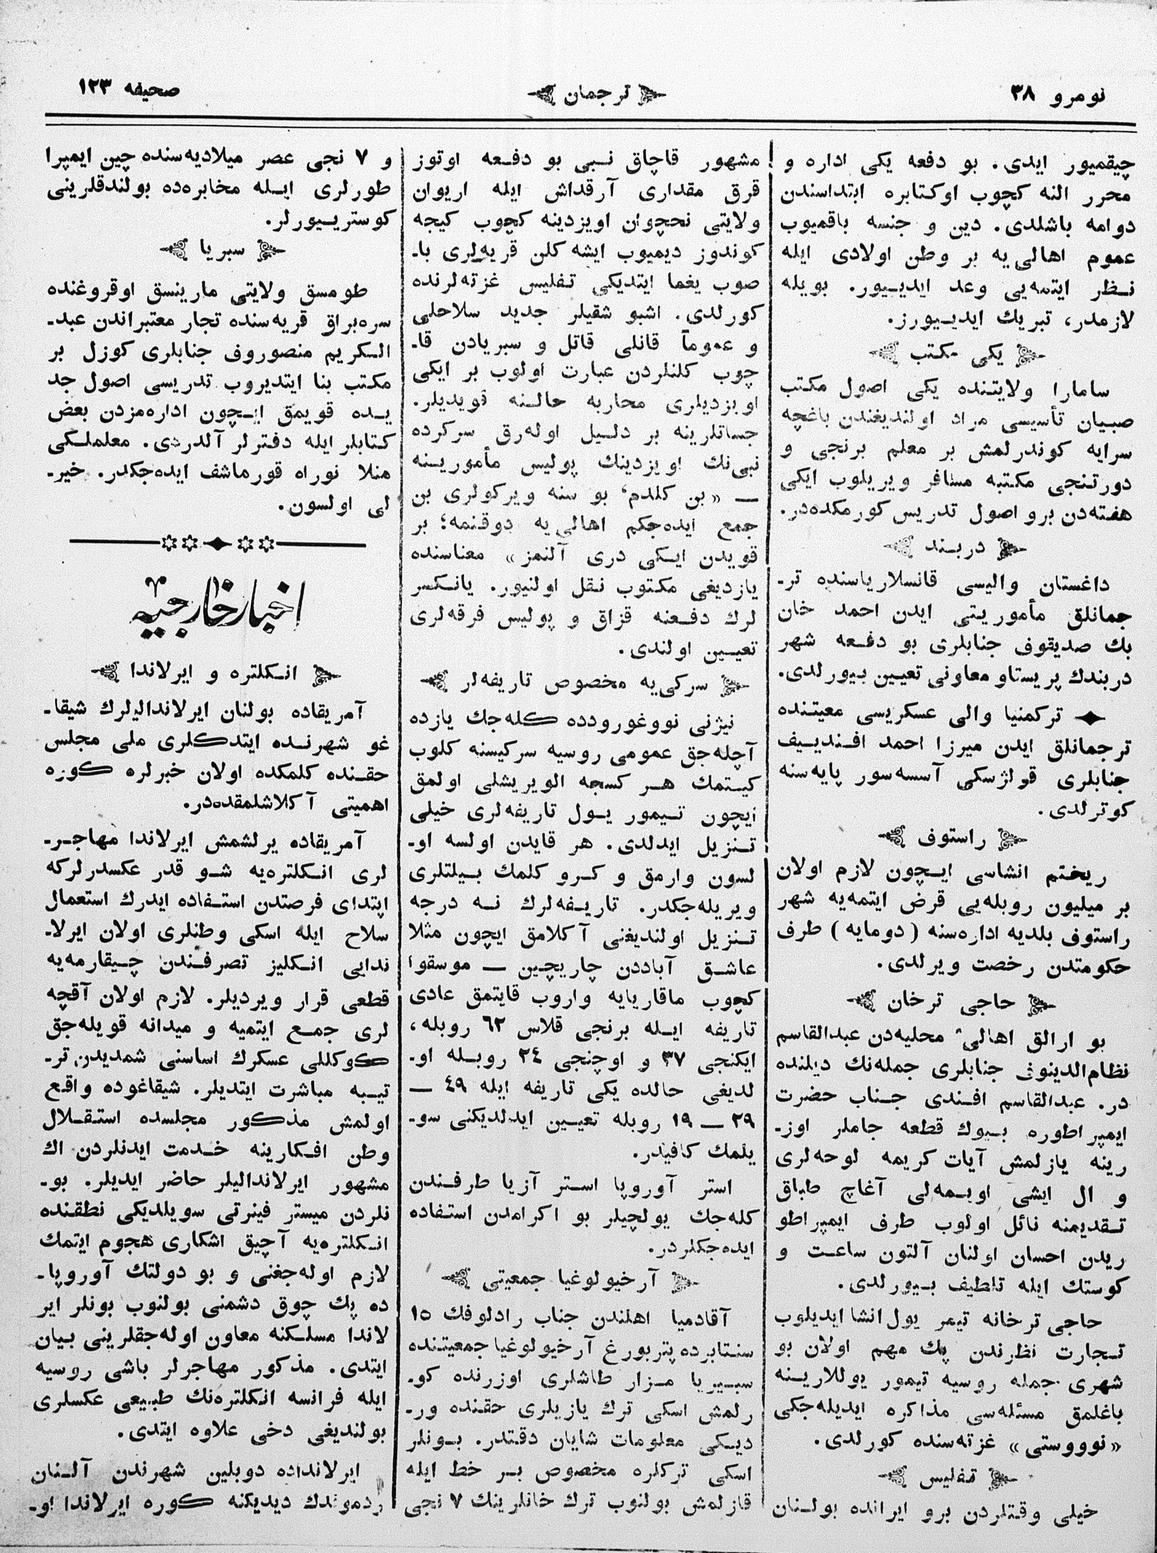 نومرو ۳۸
ترجمان
صحیفه ۱۲۳
چیقمیور ایدی. بو دفعه یكی اداره و
محرر النه كچوب اوكتابره ابتداسندن
دوامه باشلدی. دین و جنسه باقمیوب
عموم اهالی‌یه بر وطن اولادی ایله
نـظر ایتمه‌یی وعد ایدیـیور. بویله
لازمدر، تبریك ایدیـیورز.
یكی مكتب
سامارا ولایتنده یكی اصول مكتب
صبیان تأسیسی مراد اولندیغندن باغچه
سرایه كوندرلمش بر معلم برنجی و
دورتنجی مكتبه مسافر ویریلوب ایكی
هفته‌دن برو اصول تدریس كورمكده‌در.
دربـند
داغستان والیسی قانسلاریاسنده تر-
جمانلق مأموریتی ایدن احمد خان
بك صدیقوف جنابلری بو دفـعه شهر
دربندك پریستاو معاونی تعیین بـیورلدی.
تركمنیا والی عسكریسی معیتنده
ترجمانلق ایدن میرزا احمد افـندیـیف
جنابلری قولژسكی آسسه‌سور پایه‌سنه
كوترلدی.
راستوف
ریختم انشاسی ایـچون لازم اولان
بر میلیون روبله‌یی قرض ایتمه‌یه شهر
راستوف بلدیه اداره‌سنه (دومایه) طرف
حكومتدن رخصت ویرلدی.
حاجی ترخان
بو ارالق اهالیٴ محلیه‌دن عبدالقاسم
نظام‌الدینوف جنابلری جمله‌نك دیلنده
در. عبدالقاسم افـندی جـناب حضرت
ایمپراطوره بـیوك قطعه جاملر اوز-
رینه یازلمش آیات كریمه لوحه‌لری
و ال ایشی اویـمه‌لی آغاچ طباق
تـقدیمنه نائل اولوب طرف ایمپراطو
ریدن احسان اولنان آلتون ساعـت و
كوستك ایله تلطیف بـیورلدی.
حاجی ترخانه تیمر یول انشا ایدیلوب
تـجارت نظرندن پك مهم اولان بو
شهری جمله روسیه تیمور یوللاریـنه
باغلمق مسئله‌سی مذاكره ایدیله‌جكی
«نووستی» غزته‌سنده كورلدی.
تـفلیس
خیلی وقتلردن برو ایرانده بولـنان
مشهور قاچاق نـبی بو دفـعه اوتوز
قرق مقداری آرقداش ایله اریوان
ولایتی نخچوان اویزدینه كچوب كیجه
كوندوز دیمیوب ایشه كلن قریه‌لری با-
صوب یغما ایتدیكی تفلیس غزته‌لرنده
كورلدی. اشبو شقیلر جدید سلاحلی
و عموماً قانلی قاتل و سبریادن قا-
چوب كلنلردن عبارت اولوب بر ایكی
اویزدیلری محاربه حالـنه قویدیلر.
جسارتلرینه بر دلـیل اوله‌رق سركرده
نبی‌نك اویزدینك پولیس مأموریـنه
— «بن كلدم٬ بو سنه ویركولری بن
جمع ایده‌جكم اهالی‌یه دوقنمه؛ بر
قویدن ایـكی دری آلنمز» معناسنده
یازدیغی مكتوب نـقل اولنیور. یانكسز
لرك دفـعنه قزاق و پولیس فرقه‌لری
تعیـین اولندی.
سركی‌یه مخصوص تاریفه‌لر
نیژنی نووغورودده كله‌جك یازده
آچله‌جق عمومی روسیه سركیسنه كلوب
كیـتمك هـر كسجه الویریشلی اولمق
ایچون تـیمور یـول تاریفه‌لری خیلی
تـنزیل ایدلدی. هر قایدن اولسه او-
لسون وارمق و كـرو كلمك بیـلتلری
ویریله‌جكدر. تاریـفه‌لرك نـه درجه
تـنزیل اولندیغنی آكلامق ایچون مثلا
عاشـق آباددن چاریچین — موسقوا
كچوب ماقاریایه واروب قایتمق عادی
تاریفه ایـله برنجی قلاس ۶۲ روبله،
ایكنجی ۳۷ و اوچنجی ۲۴ روبـله او-
لدیغی حالده یكی تاریفه ایله ۴۹ —
۲۹ — ۱۹ روبله تعیـین ایدلدیكنی سو-
یلمك كافیدر.
استر آوروپا اسـتر آزیا طرفـندن
كله‌جك یولچیلر بو اكرامدن استفاده
ایده‌جكلردر.
آرخیولوغیا جمعیتی
آقادمیا اهلندن جناب رادلوفك ۱۵
سنتابرده پتربورغ آرخیولوغیا جمعیتنده
سـبـیریا مـزار طاشلری اوزرنده كو-
رلمش اسكی ترك یازیلری حقنده ور-
دیـكی معلومات شایان دقتدر. بـونلر
اسكی تركلره مخصوص بـر خط ایله
قازلمش بولنوب ترك خانلریـنك ۷ نجی
و ۷ نجی عصر میلادیه‌سنده چین ایمپرا
طورلری ایـله مخابره‌ده بولندقلرینی
كوستریـیورلر.
سبریا
طومسق ولایتی مارینسق اوقروغنده
سره‌براق قریه‌سنده تجار معتبراندن عبد-
الـكریم منصوروف جنابلری كوزل بر
مكتب بنا ایتدیروب تدریسی اصول جد
یـده قویمق ایـچون اداره‌مزدن بعض
كتابلر ایله دفترلر آلدردی. معلملـكی
منلا نوراه قورماشف ایده‌جكدر. خیر-
لی اولسون.
اخبار خارجیه
انـكلتره و ایرلاندا
آمریقاده بولنان ایرلاندالیلرك شیقا-
غو شهرنـده ایتدكلری ملی مجلس
حقـنده كلمكده اولان خبرلره كوره
اهمیتی آكلاشلمقده‌در.
آمریقاده یرلشمش ایرلاندا مهاجـر-
لری انـكلتره‌یه شـو قدر عكسدرلركه
ابتدای فرصتدن استـفاده ایدرك استعمال
سلاح ایله اسكی وطنلری اولان ایرلا-
ندایی انـكلیز تصرفـندن چـیقارمه‌یه
قطعی قرار ویردیلر. لازم اولان آقچه
لری جمـع ایتمیه و میدانه قویله‌جق
كوكللی عسكرك اساسنی شمدیدن تر-
تیـبه مباشرت ایتدیلر. شیقاغوده واقع
اولمش مذكور مجلسده استـقـلال
وطن افـكارینه خـدمت ایدنلردن اك
مشهور ایرلاندالیلر حاضر ایدیلر. بو-
نلردن میستر فینرتی سویلدیكی نطقنده
انـكلتره‌یه آچیق اشكاری هجوم ایتمك
لازم اوله‌جغنی و بو دولتك آوروپا-
ده پك چوق دشمنی بولنوب بونلر ایر
لاندا مسلكنه معاون اوله‌جقلرینی بیان
ایتدی. مذكور مهاجرلر باشی روسیه
ایله فرانسه انكلتره‌نك طبیعی عكسلری
بولندیغی دخی علاوه ایتدی.
ایرلانداده دوبلین شهرندن آلـنان
ردموندك دیدیكنه كوره ایرلاندا او-